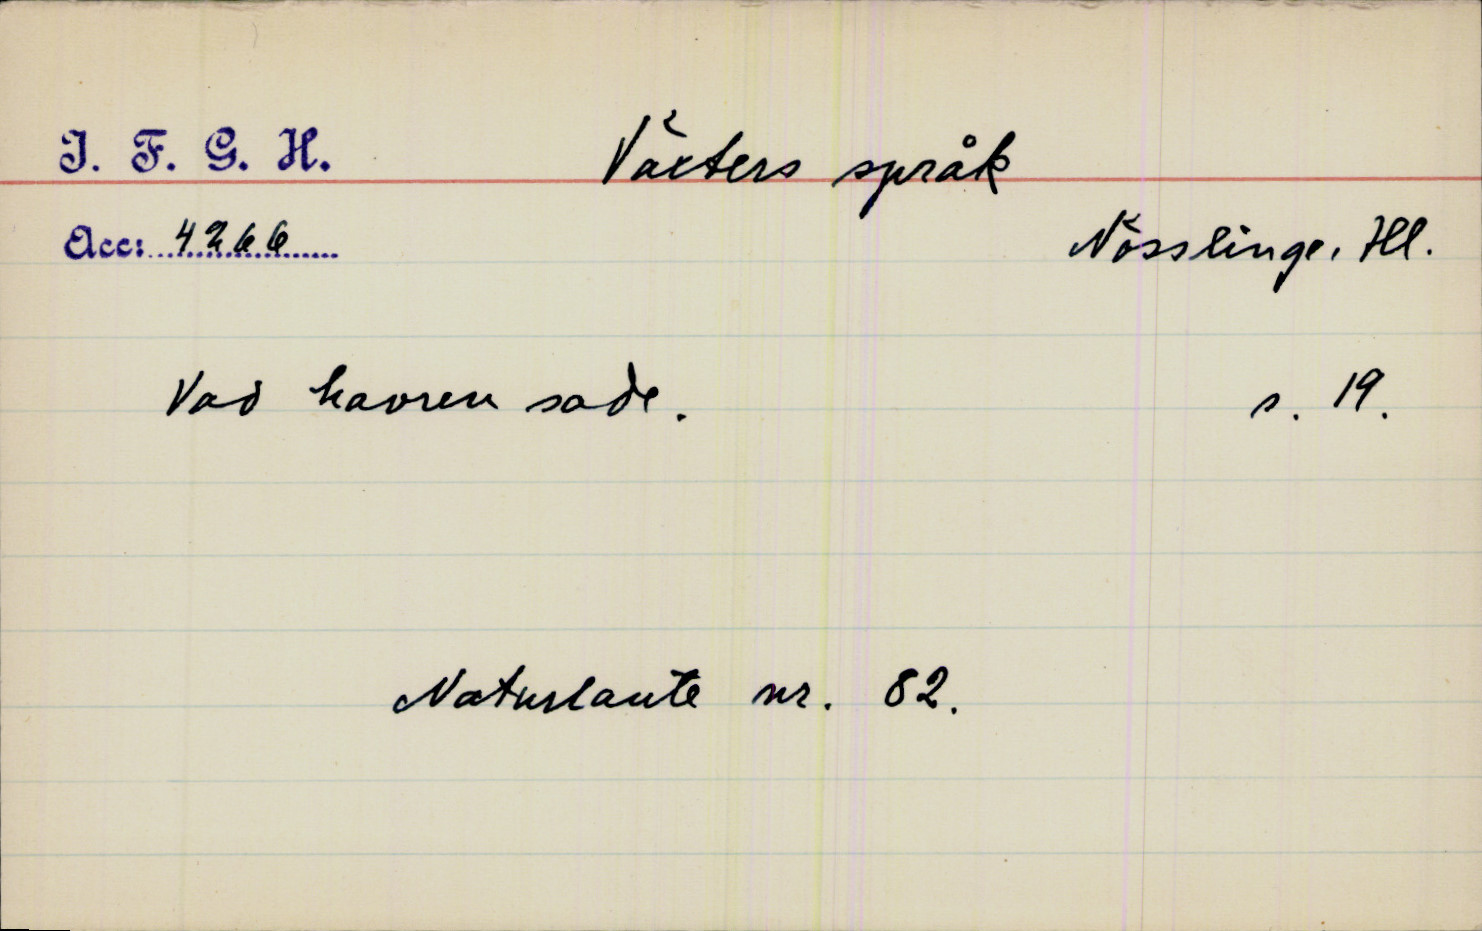 I. F. G. H.
Växters språk
Acc: 4266
Nösslinge, Hl.
Vad havren sade.
s. 19.
Naturlaute nr. 82.